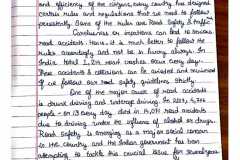 and efficiency of the citizens, every country has designed
certain rules and regulations that we need to follow
persistently. Some of the rules are Road Safety & traffic
Carelessness or impatience can lead to serious
road accidents. Hence, it is much better to follow the
rules accordingly and not be in hurry always. In
India, total road crashes occur every day.
These accidents & collisions can be avoided and minimized
if we follow our road safety guidelines strictly.
One of the major cause of road accidents
is drunk driving and underage driving. In
people - or 13 every day died in road accidents
due to driving under the influence of alcohol or drugs.
Road Safety is emerging as a major social concern
in the country and the Indian government has been
attempting to tackle this crucial issue for several years